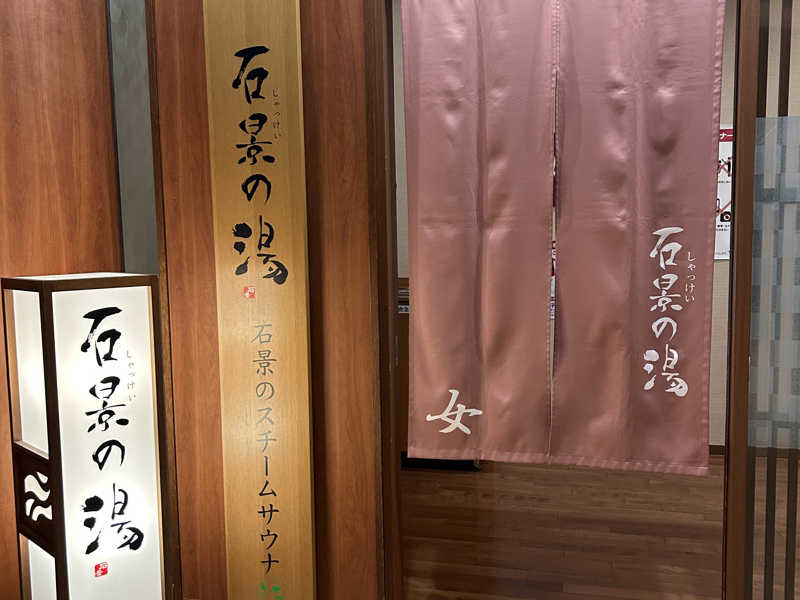 石景の湯
しゃっけい
石景のスチームサウナ
石景の湯
しゃっけい
石景の湯
しゃっけい
女